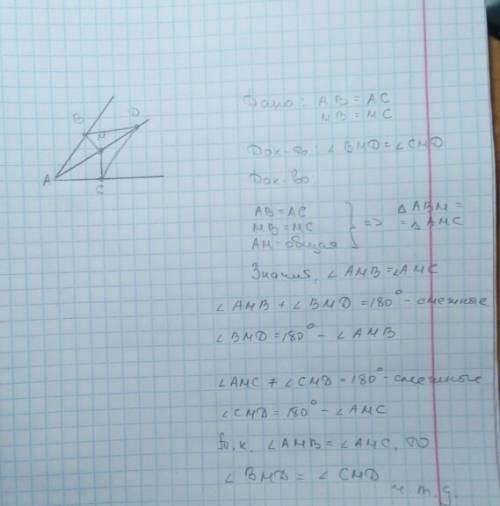 B D
M
A
C
Дано: AB = AC
MB = MC
Док-во: ∠BMD = ∠CMD
Док-во
AB = AC
MB = MC
AM - общая
} => △ABM =
= △AMC
Значит, ∠AMB = ∠AMC
∠AMB + ∠BMD = 180° - смежные
∠BMD = 180° - ∠AMB
∠AMC + ∠CMD = 180° - смежные
∠CMD = 180° - ∠AMC
т.к. ∠AMB = ∠AMC, то
∠BMD = ∠CMD
ч т.д.